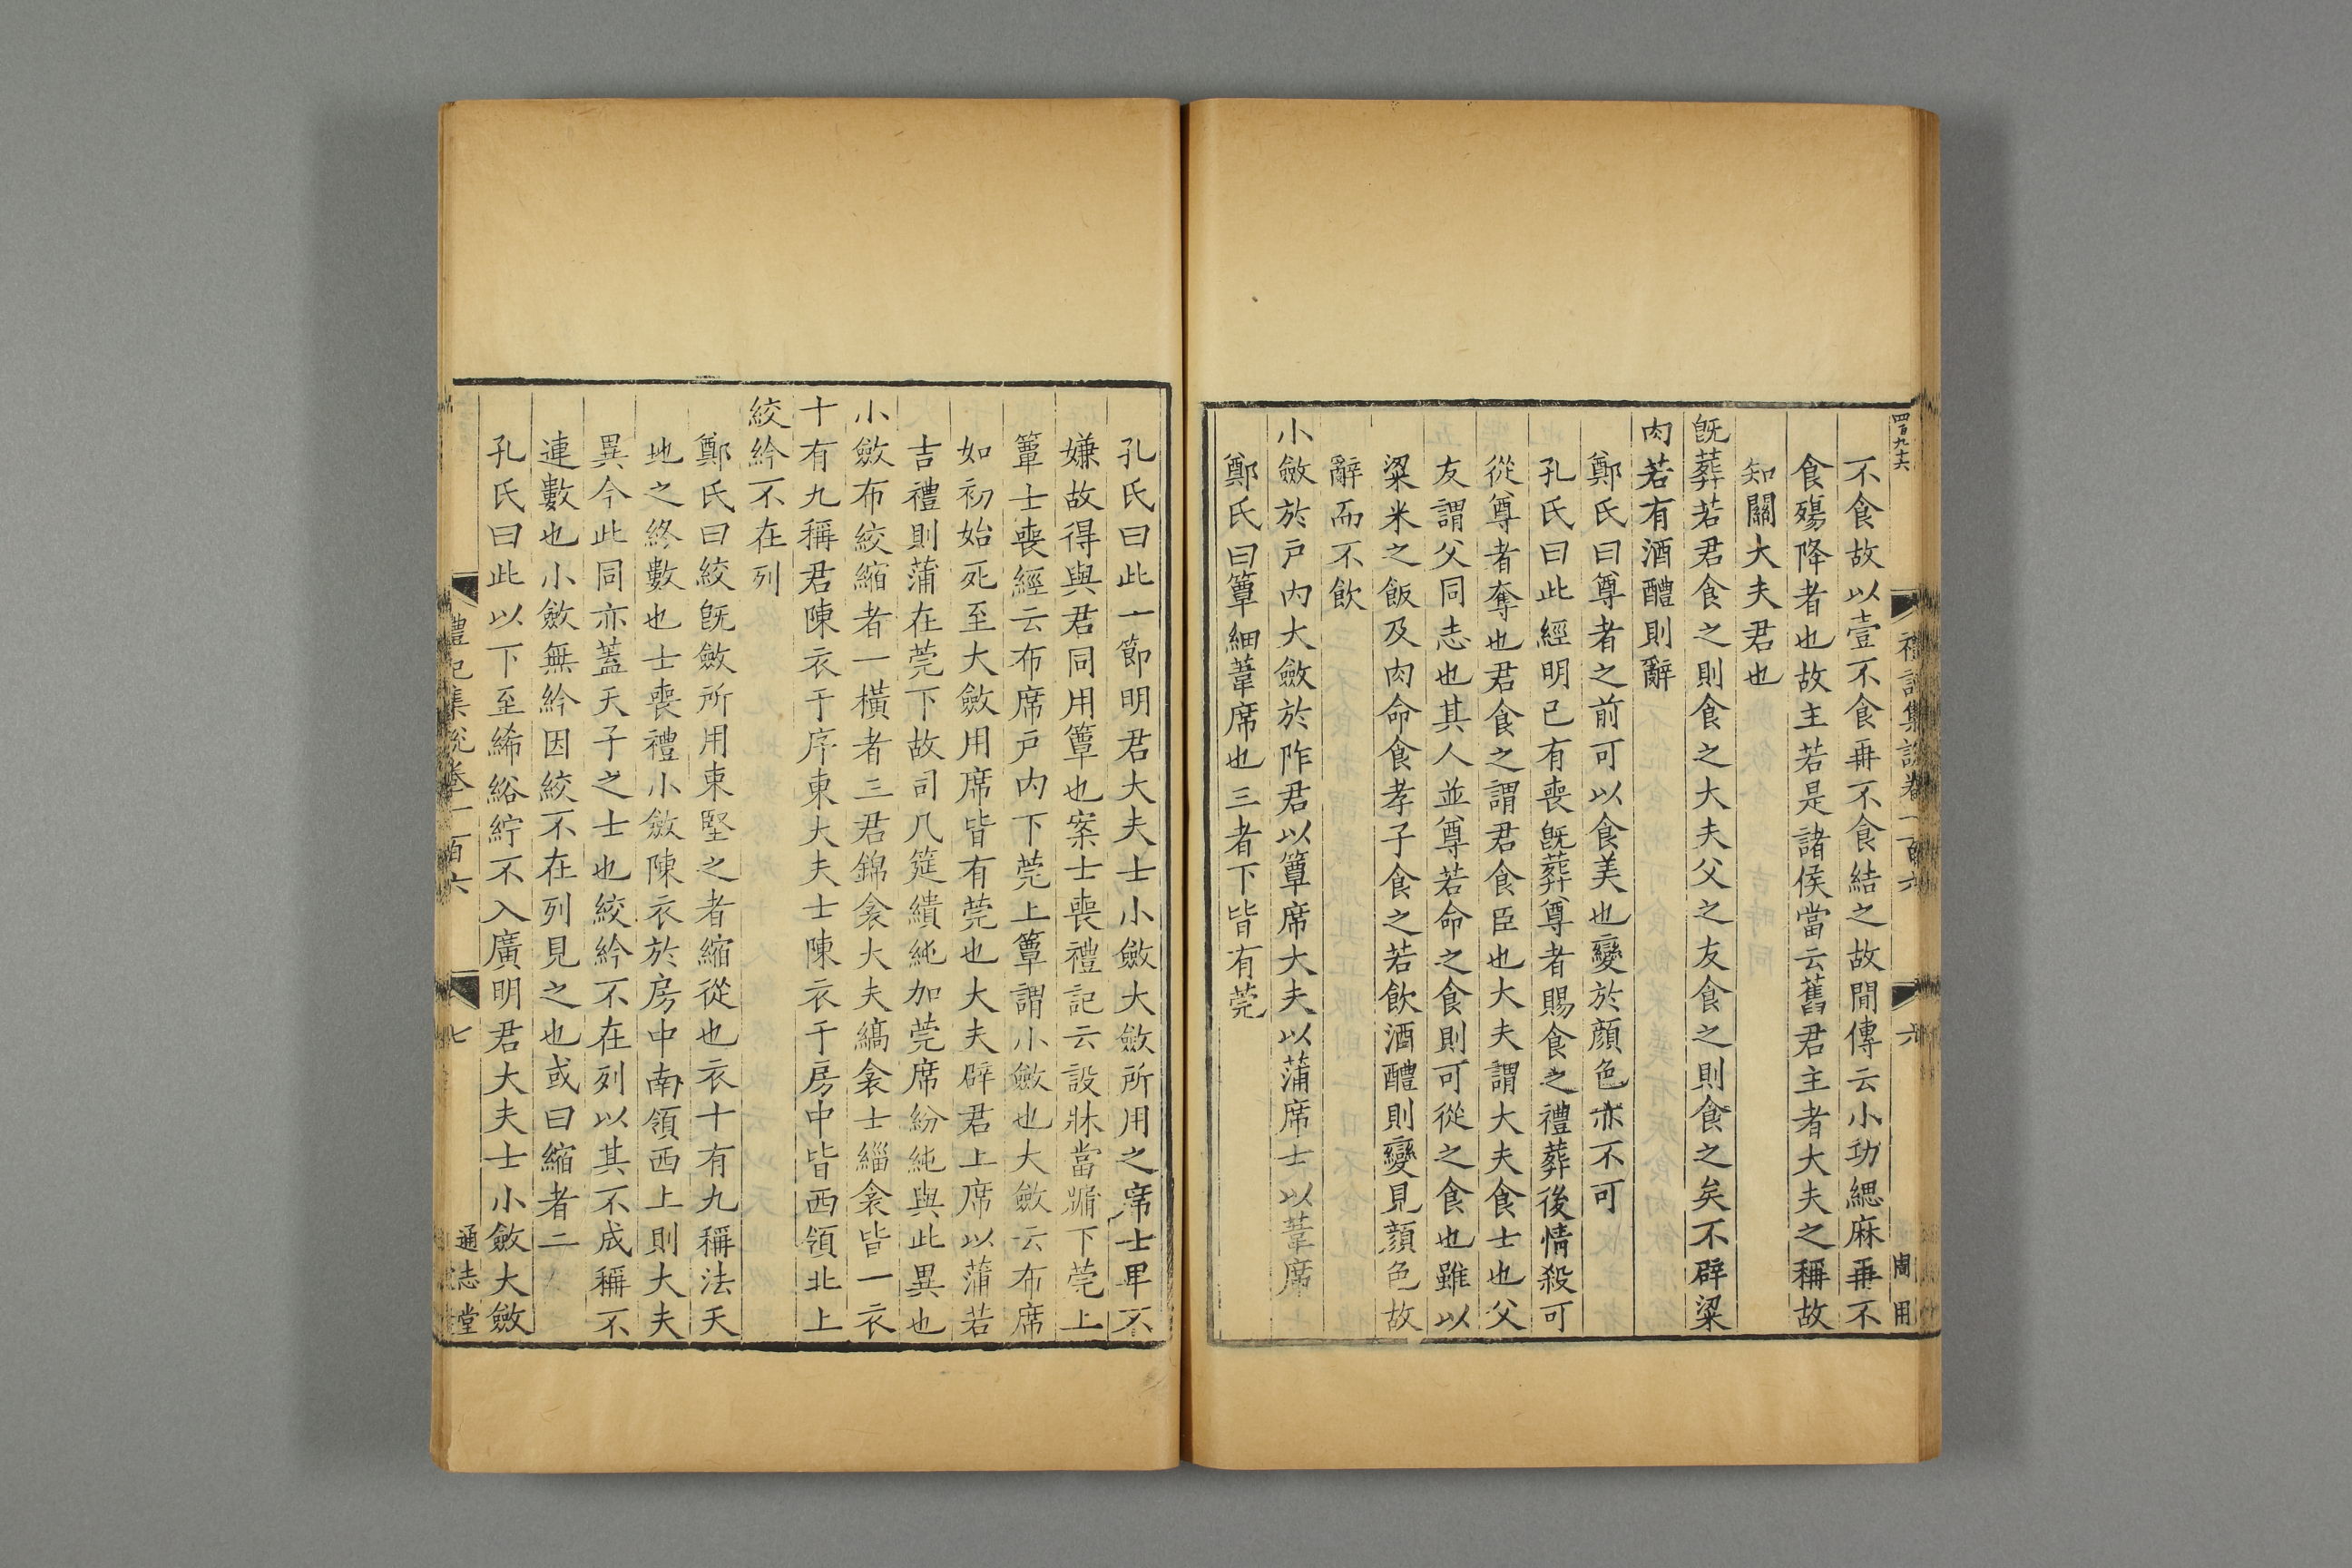 四百九十六
禮記集說卷一百六
六
周用
不食故以壹不食再不食結之故間傳云小功緦麻再不
食殤降者也故主若是諸侯當云舊君主者大夫之稱故
知關大夫君也
旣葬若君食之則食之大夫父之友食之則食之矣不辟粱
肉若有酒醴則辭
鄭氏曰尊者之前可以食美也變於顔色亦不可
孔氏曰此經明已有喪旣葬尊者賜食之禮葬後情殺可
從尊者奪也君食之謂君食臣也大夫謂大夫食士也父
友謂父同志也其人並尊若命之食則可從之食也雖以
粱米之飯及肉命食孝子食之若飲酒醴則變見顔色故
辭而不飲
小斂於戸內大斂於阼君以簟席大夫以蒲席士以葦席
鄭氏曰簟細葦席也三者下皆有莞
孔氏曰此一節明君大夫士小斂大斂所用之席士卑不
嫌故得與君同用簟也案士喪禮記云設牀當牖下莞上
簟士喪經云布席戸内下莞上簟謂小斂也大斂云布席
如初始死至大斂用席皆有莞也大夫辟君上席以蒲若
吉禮則蒲在莞下故司几筵繢純加莞席紛純與此異也
小斂布絞縮者一橫者三君錦衾大夫縞衾士緇衾皆一衣
十有九稱君陳衣于序東大夫士陳衣于房中皆西領北上
絞紟不在列
鄭氏曰絞旣斂所用束堅之者縮從也衣十有九稱法天
地之終數也士喪禮小斂陳衣於房中南領西上則大夫
異今此同亦蓋天子之士也絞紟不在列以其不成稱不
連數也小斂無紟因絞不在列見之也或曰縮者二
孔氏曰此以下至絺綌紵不入廣明君大夫士小斂大斂
禮記集說卷一百六
七
通志堂